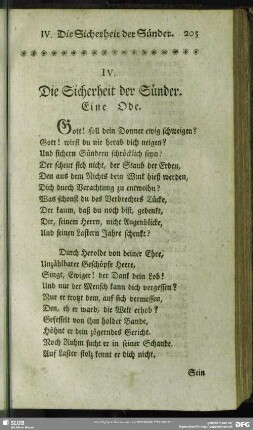 IV. Die Sicherheit der Sünder. 205
IV.
Die Sicherheit der Sünder.
Eine Ode.
Gott! soll dein Donner ewig schweigen?
Gott! wirst du nie herab dich neigen?
Und sichern Sündern schröcklich seyn?
Der scheut sich nicht, der Staub der Erden,
Den aus dem Nichts dein Wink hieß werden,
Dich durch Verachtung zu entweihn?
Was schonst du des Verbrechers Tücke,
Der kaum, daß du noch bist, gedenkt,
Der, seinem Herrn, nicht Augenblicke,
Und seinen Lastern Jahre schenkt?
Durch Herolde von deiner Ehre,
Unzählbarer Geschöpfe Heere,
Singt, Ewiger! der Dank dein Lob!
Und nur der Mensch kann dich vergessen?
Nur er trotzt dem, auf sich vermessen,
Den, eh er ward, die Welt erhob?
Gefesselt von ihm holder Bande,
Höhnt er dein zögerndes Gericht.
Noch Ruhm sucht er in seiner Schande.
Auf Laster stolz kennt er dich nicht.
Sein
SLUB
DFG